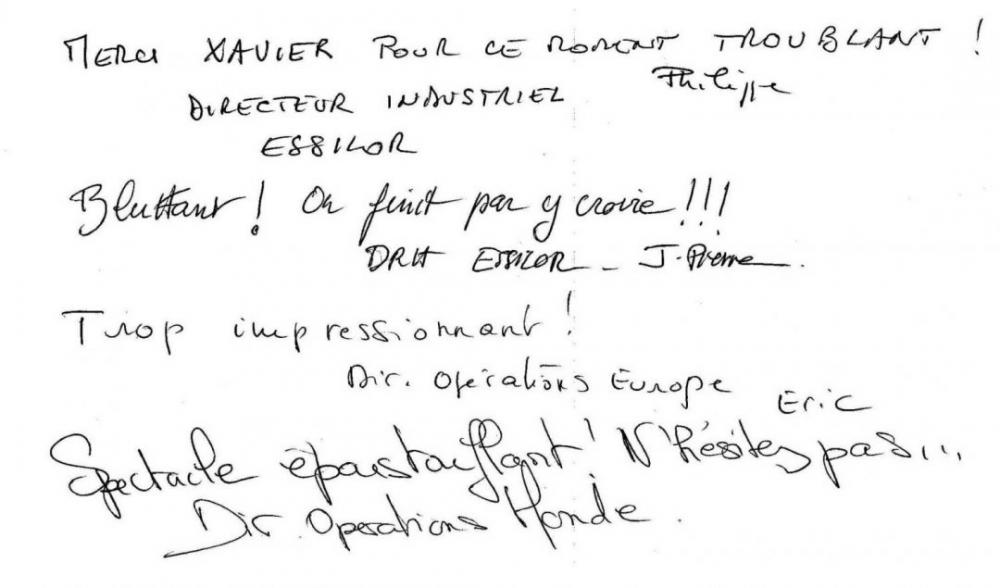 MERCI XAVIER POUR CE MOMENT TROUBLANT !
Philippe
DIRECTEUR INDUSTRIEL
ESSILOR
Bluttant ! On finit par y croire !!!
DRH ESSILOR - J-Pierre.
Trop impressionnant !
Dir. Opérations Europe
Eric
Spectacle époustouflant ! N'hésitez pas...
Dir Operations Monde.